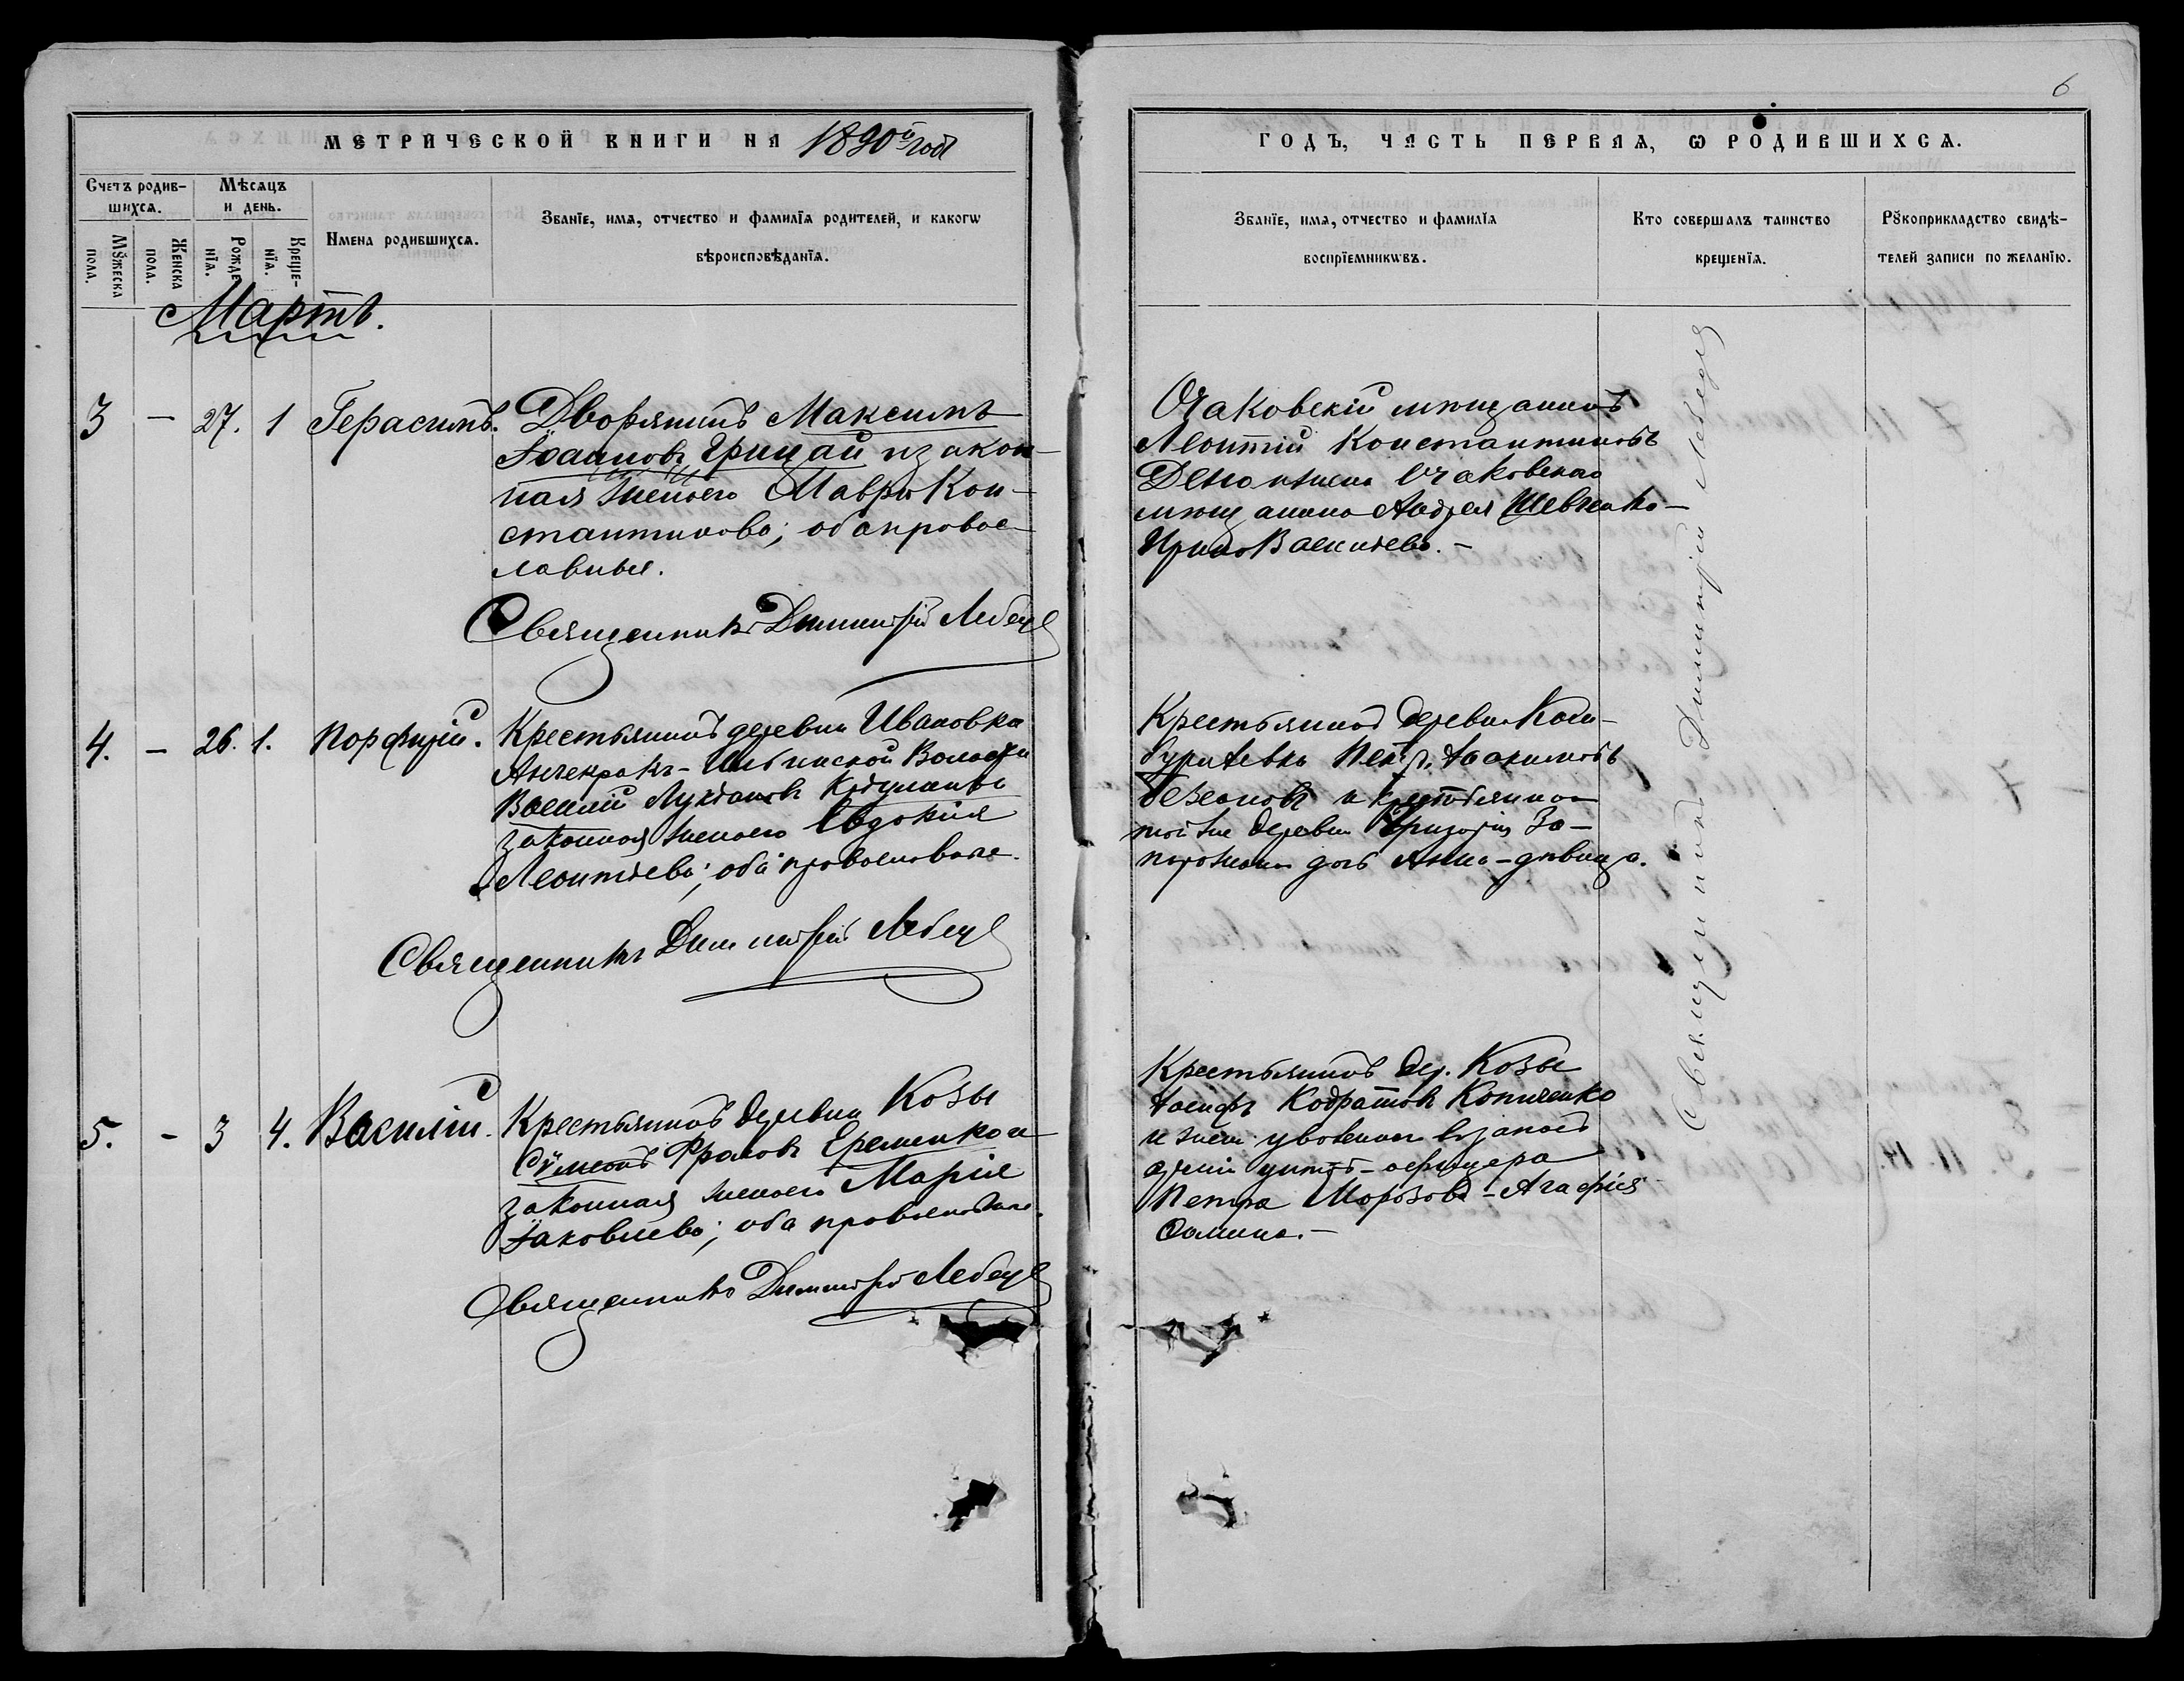 6
МЕТРИЧЕСКОЙ КНИГИ НА 1890й годъ
ГОДЪ, ЧАСТЬ ПЕРВАЯ, Ѡ РОДИВШИХСѦ.
Счетъ родив-
шихсѧ.
Мꙋжеска
пола.
Женска
пола.
Мѣсѧцъ
и день.
Рожде-
нїѧ.
Креще-
нїѧ.
Имена родившихсѧ.
Званїе, имѧ, отчество и фамилїѧ родителей, и какогѡ
вѣроисповѣданїѧ.
Званїе, имѧ, отчество и фамилїѧ
воспрїемникѡвъ.
Кто совершалъ таинство
крещенїѧ.
Рꙋкоприкладство свидѣ-
телей записи по желанїю.
Мартъ.
3 — 27. 1 Герасимъ.
Дворянинъ Максимъ
Іоанновъ Грицай и закон-
ная жена его Мавра Кон-
стантинова; оба правос-
лавные.
Священникъ Димитрій Лебедь
Очаковскій мѣщанинъ
Леонтій Константиновъ
жена Очаковскаго
мѣщанина Андрея Шевченко—
Ирина Васильева. —
4. — 26. 1. Порфирій.
Крестьянинъ деревни Ивановки
Анчекракъ- волости
Василій
законная жена его Евдокія
Леонтьева; оба православные.
Священникъ Димитрій Лебедь
Крестьянинъ деревни
Петръ Іоакимовъ
и крестьянина
той же деревни Григорія За-
порожана дочь Анна - дѣвица.
5. — 3 4. Василій.
Крестьянинъ деревни Козы
Сѷмеонъ Фроловъ Еременко и
законная жена его Марія
Іаковлева; оба православные.
Священникъ Димитрій Лебедь
Крестьянинъ дер. Козы
Іосифъ Кодратовъ
и жена уволеннаго въ запасъ
арміи унтеръ-офицера
Петра Морозова - Агафія
Священникъ Димитрій Лебедь